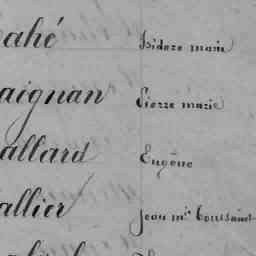 ahé Isidore marie
aignan Pierre marie
allard Eugène
allier Jean mie Toussaint